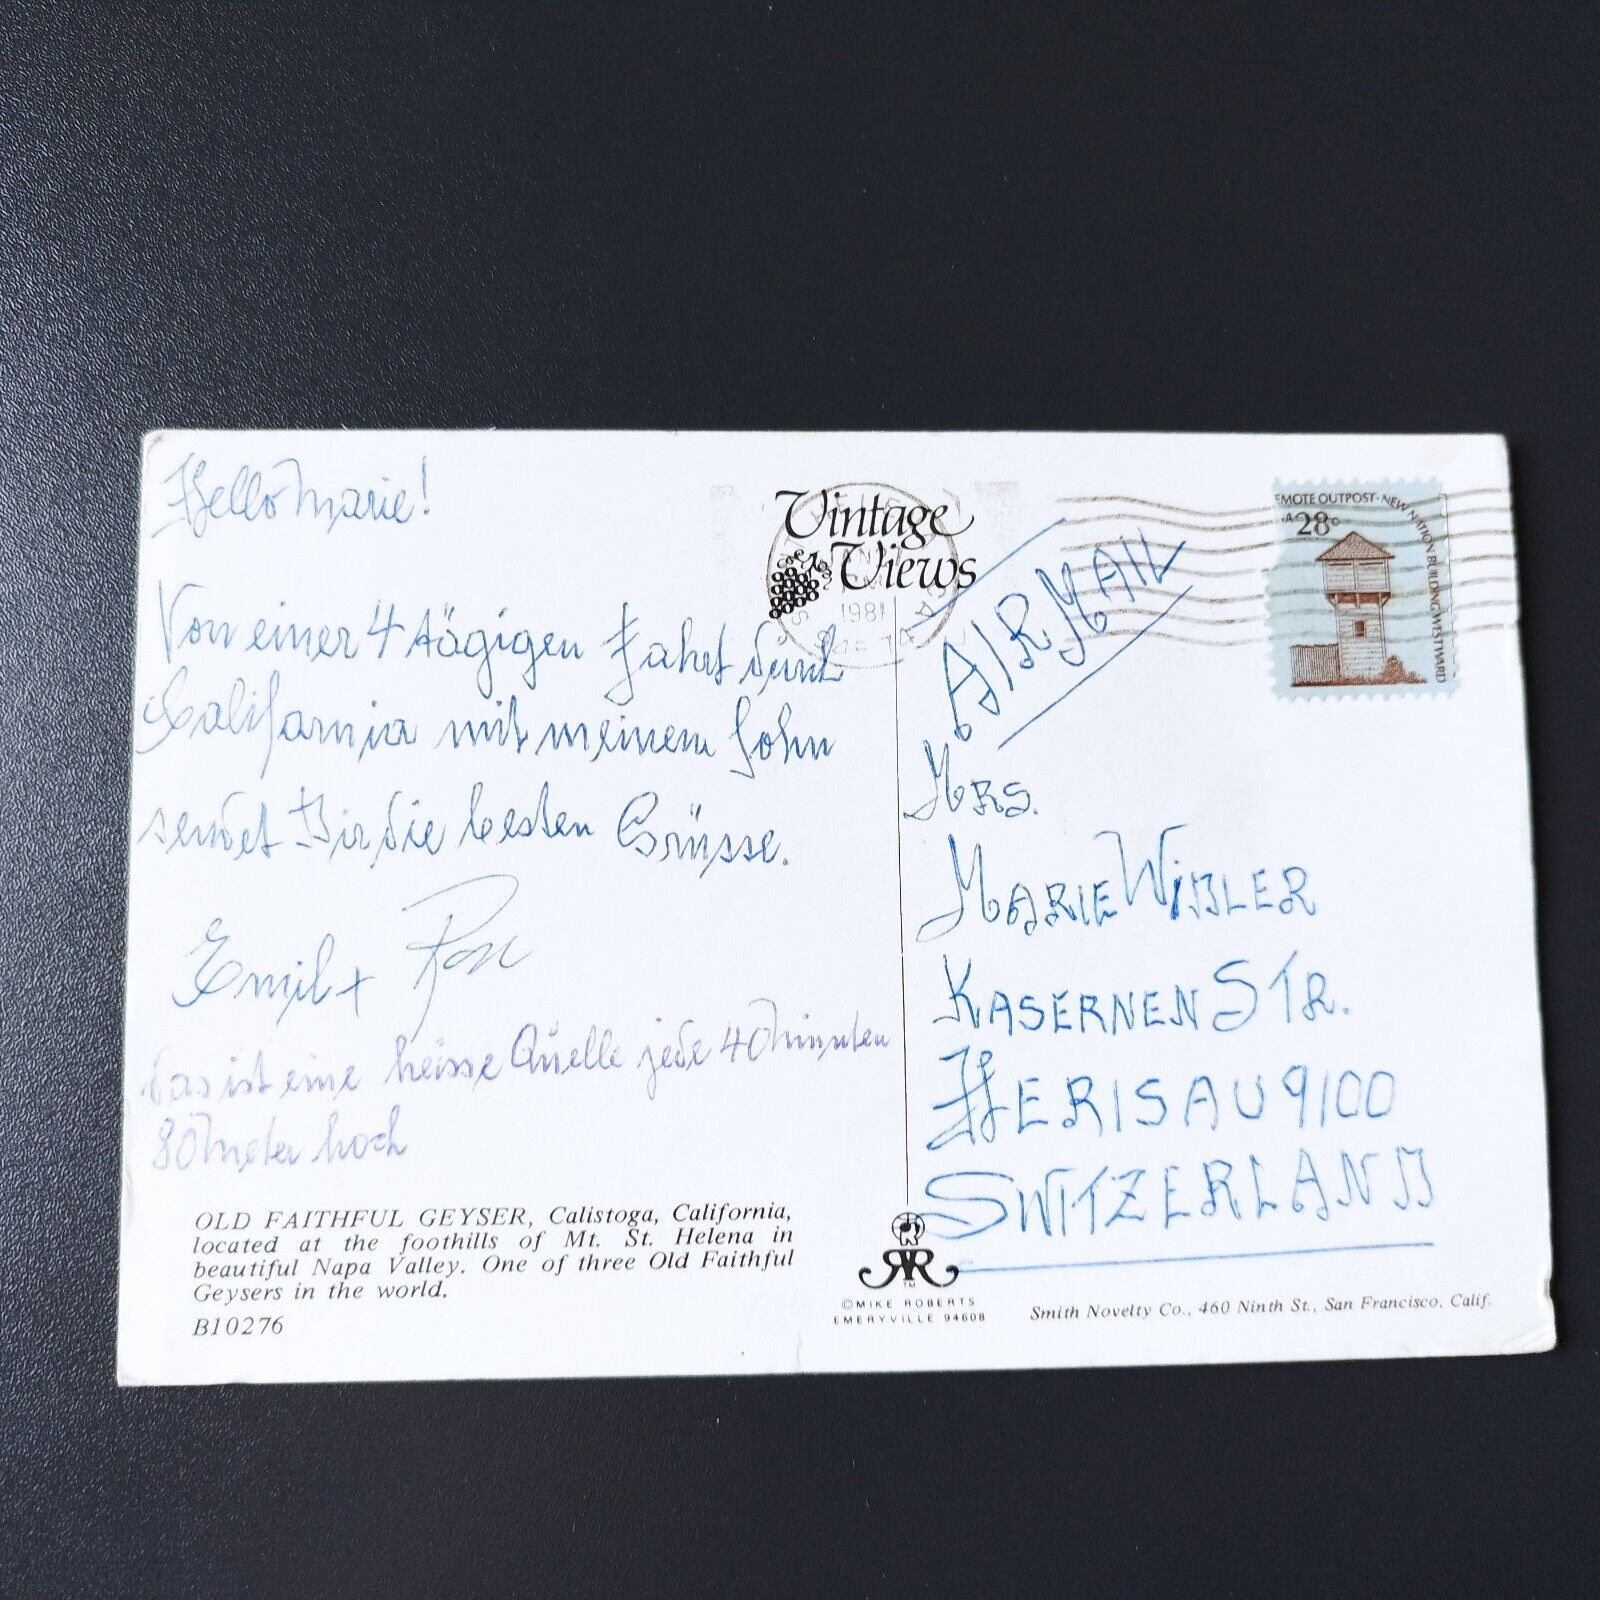 Hello Marie!
Von einer 4 tägigen Fahrt durch
California mit meinem Sohn
sendet Dir die besten Grüsse.
Emil + Ron
Das ist eine heisse Quelle jede 40 Minuten
80 Meter hoch
OLD FAITHFUL GEYSER, Calistoga, California,
located at the foothills of Mt. St. Helena in
beautiful Napa Valley. One of three Old Faithful
Geysers in the world.
B10276
Vintage
Views
1981
AIR MAIL
EMOTE OUTPOST-NEW NATION BUILDING WESTWARD
A 28c
MRS.
MARIE
KASERNENSTR.
HERISAU 9100
SWITZERLAND
TM
©MIKE ROBERTS
EMERYVILLE 94608
Smith Novelty Co., 460 Ninth St., San Francisco, Calif.